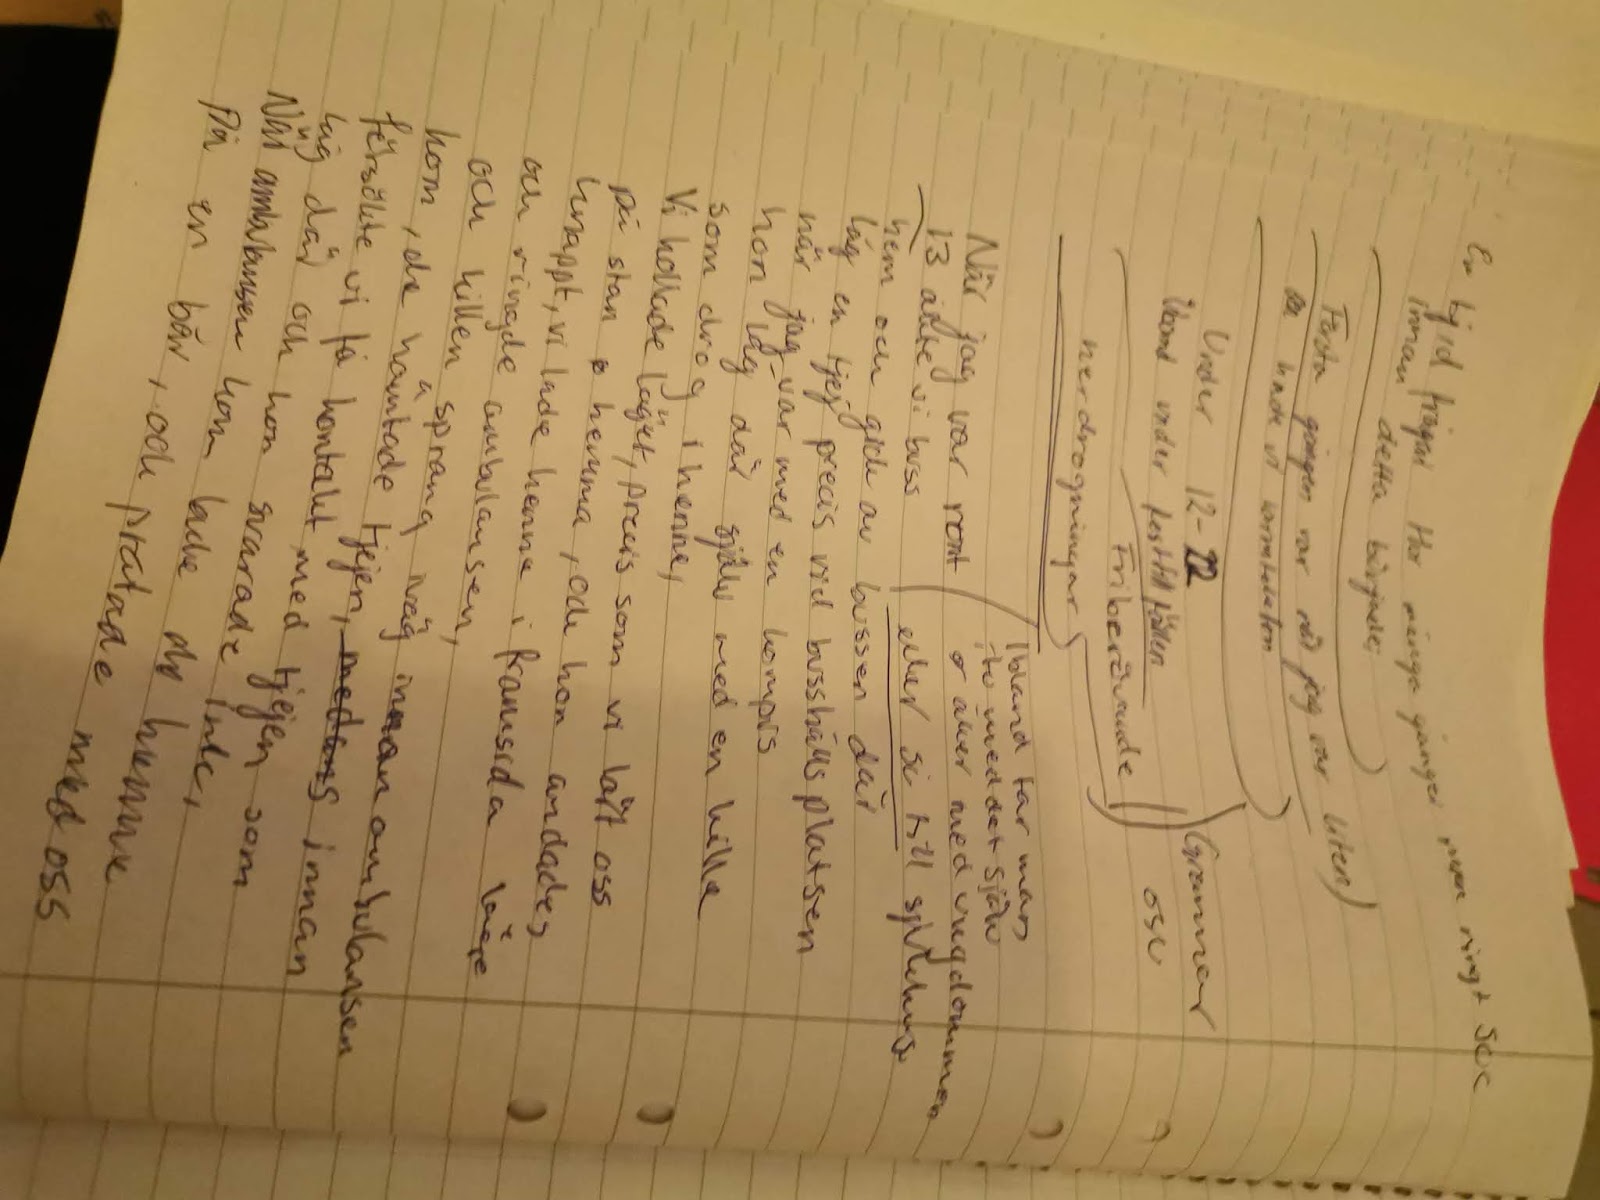 En tjej frågar Hur många gånger måste ringt soc
innan detta började;
Första gången var när jag var liten)
då hade vi
Under 12-22
Ibland under festtillfällen (grannar
Friberövande)) osv
nerdrogningar)
Ibland tar man
tu med det själv
o åker med ungdommen
eller si till sjukhus
När jag var runt
13 åkte vi buss
hem och gick av bussen där
låg en tjej precis vid busshållsplatsen
när jag var med en kompis
hon låg där själv med en kille
som drog i henne,
Vi kollade läget, precis som vi lärt oss
på stan o hemma, och hon andades
knappt, vi lade henne i framsida läge
och ringde ambulansen,
och killen sprang iväg innan ambulansen
kom, de hämtade tjejen,
försökte vi få kontakt med tjejen som
låg där och hon svarade inte,
När ambulansen kom lade de henne
På en bår, och pratade med oss